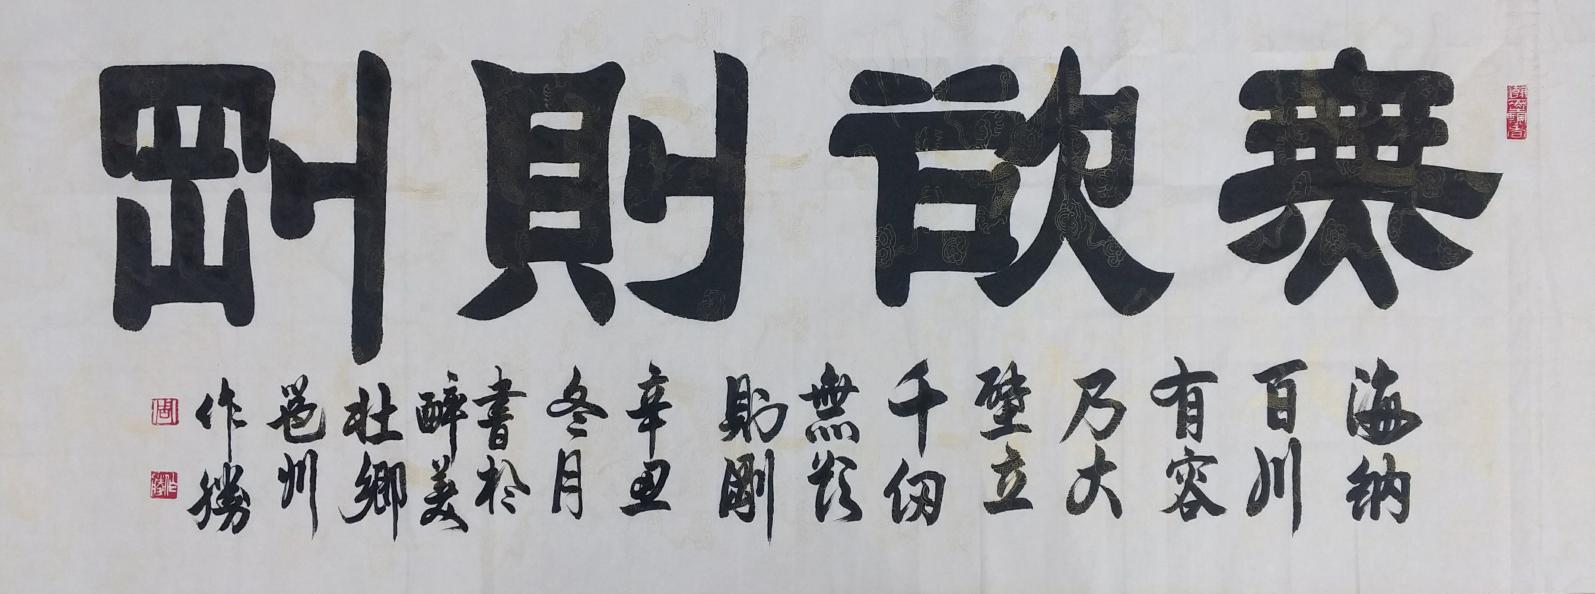 無欲則剛
海纳
百川
有容
乃大
壁立
千仞
無欲
則剛
辛丑
冬月
書於
醉美
壮鄉
邕州
作勝
周
作勝